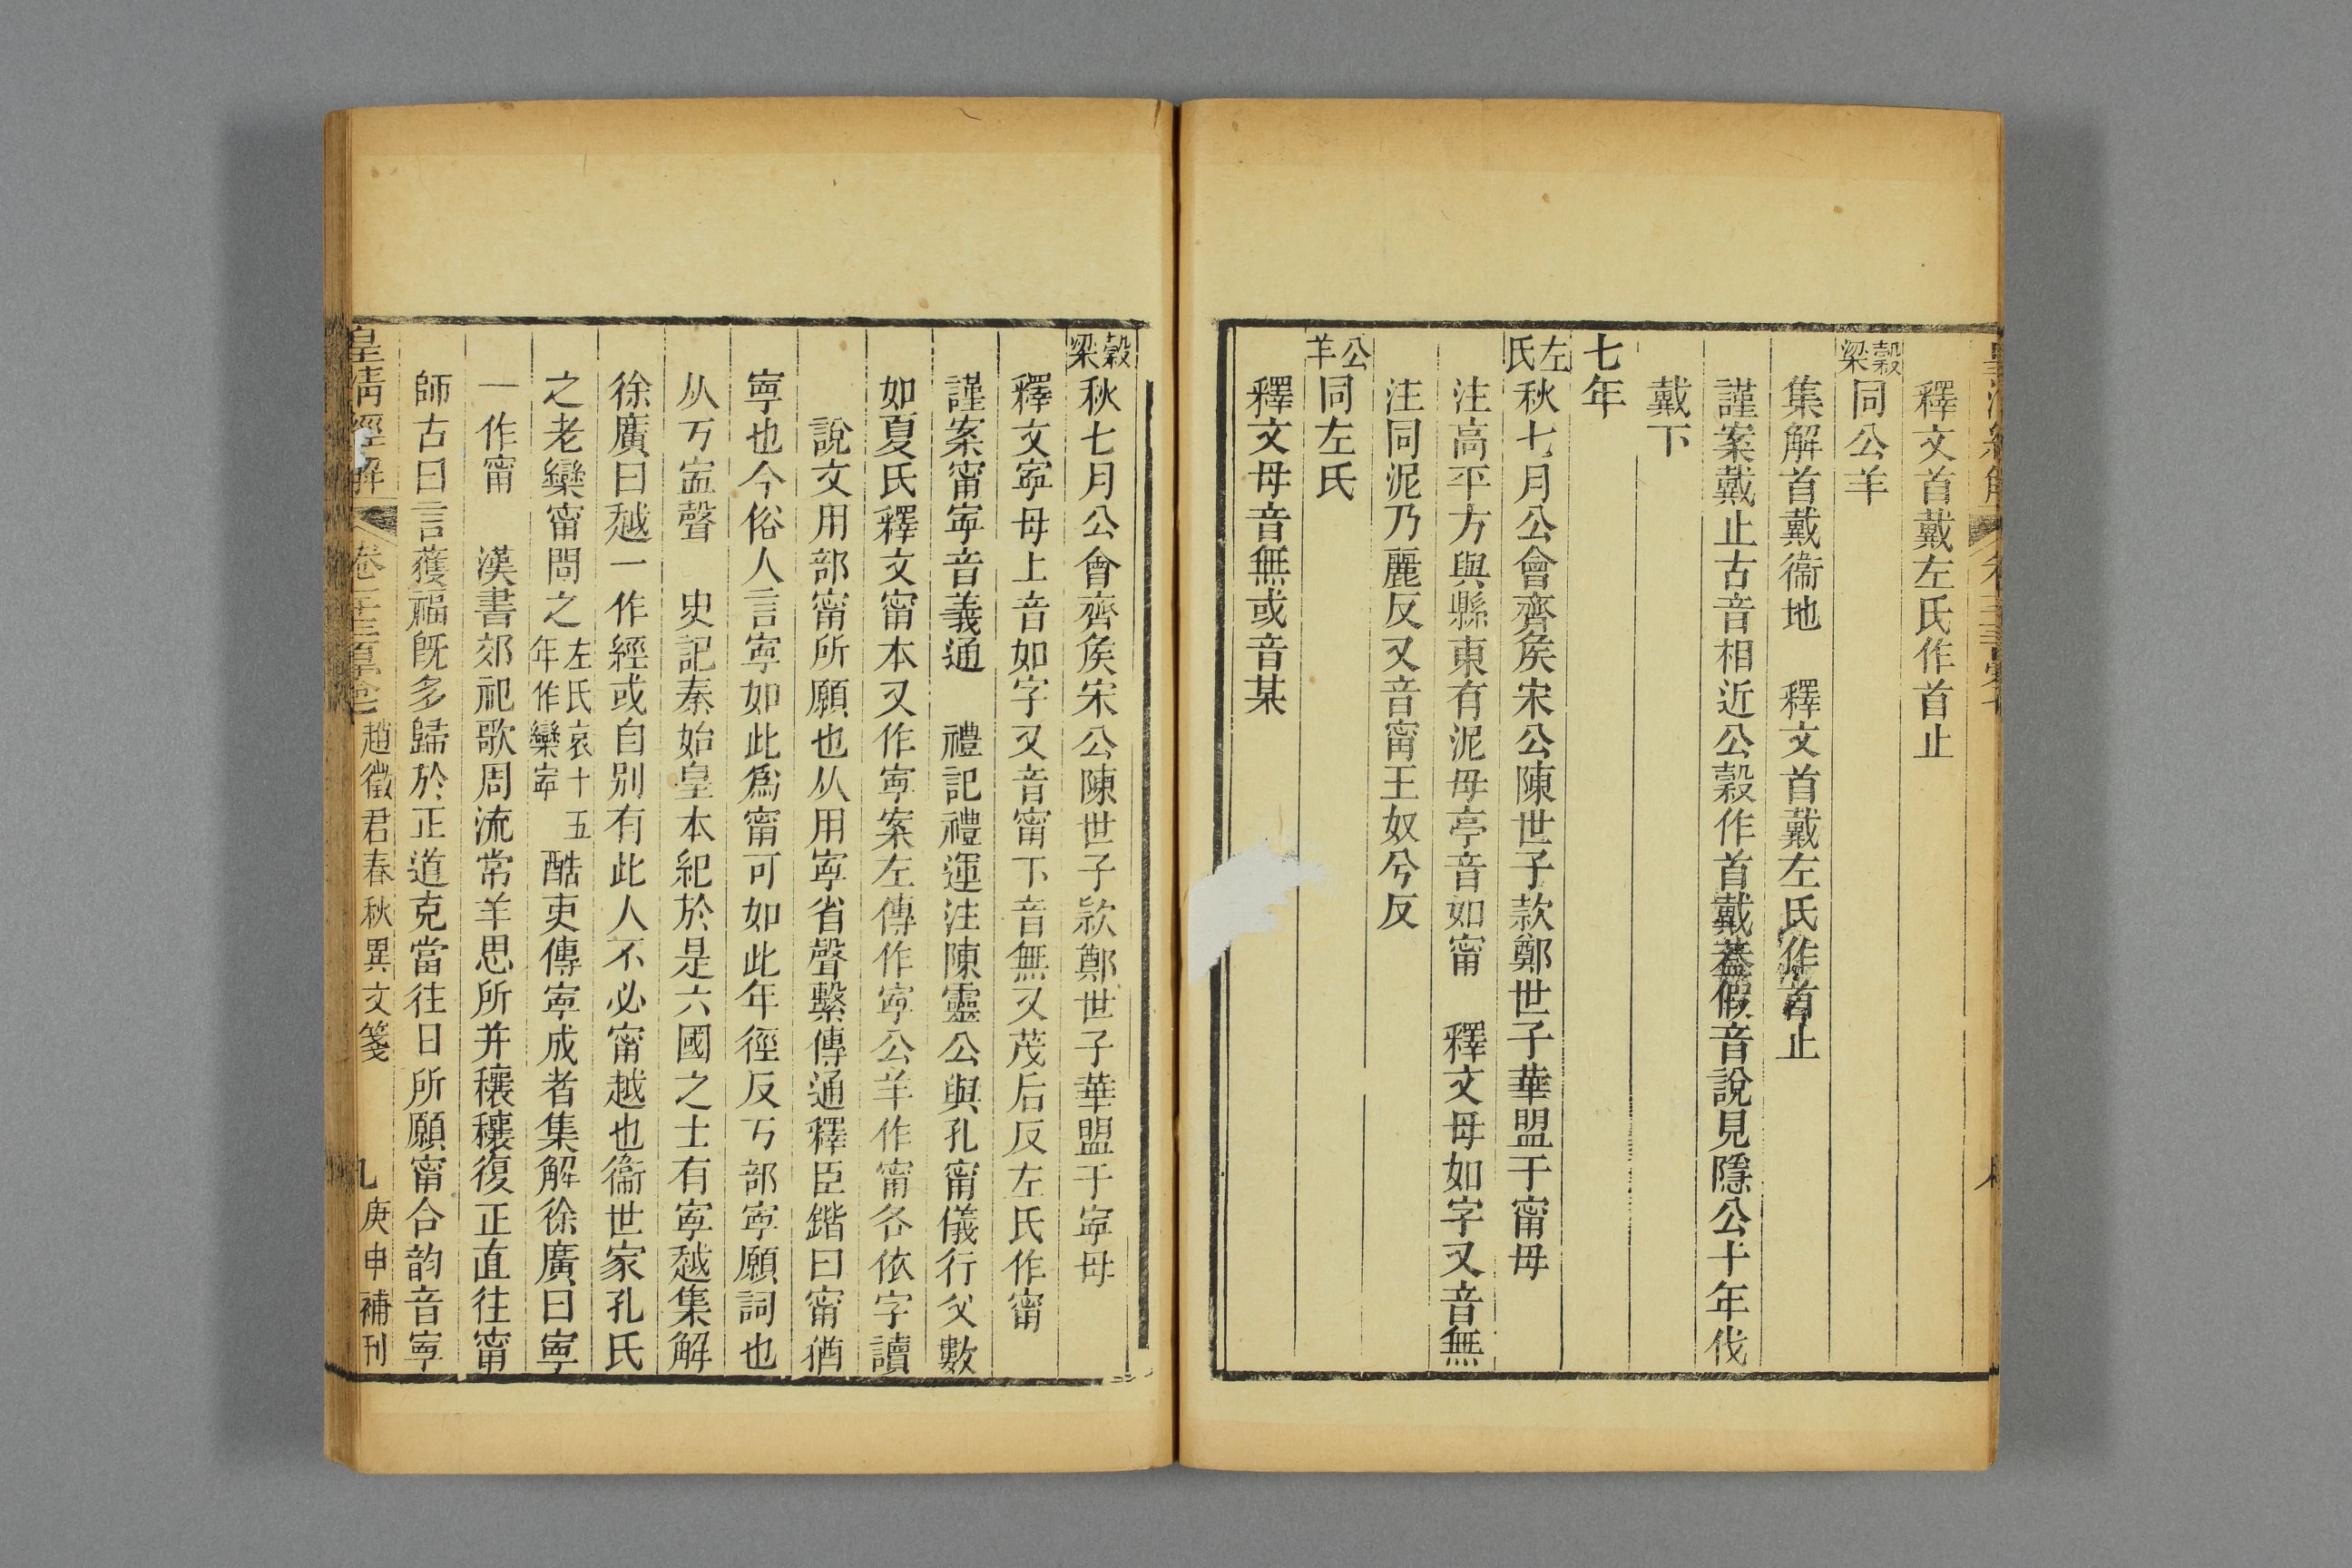 釋文首戴左氏作首止
穀梁同公羊
集解首戴衞地　釋文首戴左氏作首止
謹案戴止古音相近公穀作首戴蓋假音說見隱公十年伐
戴下
七年
左氏秋七月公會齊矦宋公陳世子款鄭世子華盟于甯毋
注高平方與縣東有泥毋亭音如甯　釋文毋如字又音無
注同泥乃麗反又音甯王奴兮反
公羊同左氏
釋文毋音無或音某
穀梁秋七月公會齊矦宋公陳世子款鄭世子華盟于寍毋
釋文寍毋上音如字又音甯下音無又茂后反左氏作甯
謹案甯寍音義通　禮記禮運注陳靈公與孔甯儀行父數
如夏氏釋文甯本又作寧案左傳作寧公羊作甯各依字讀
說文用部甯所願也从用寍省聲繫傳通釋臣鍇曰甯猶
寧也今俗人言寧如此爲甯可如此年徑反丂部寧願詞也
从丂寍聲　史記秦始皇本紀於是六國之士有寧越集解
徐廣曰越一作經或自別有此人不必甯越也衞世家孔氏
之老欒甯問之左氏哀十五年作欒寧　酷吏傳寧成者集解徐廣曰寧
一作甯　漢書郊祀歌周流常羊思所并穰穰復正直往甯
師古曰言獲福既多歸於正道克當往日所願甯合韵音寧
皇清經解　趙徵君春秋異文箋　庚申補刊